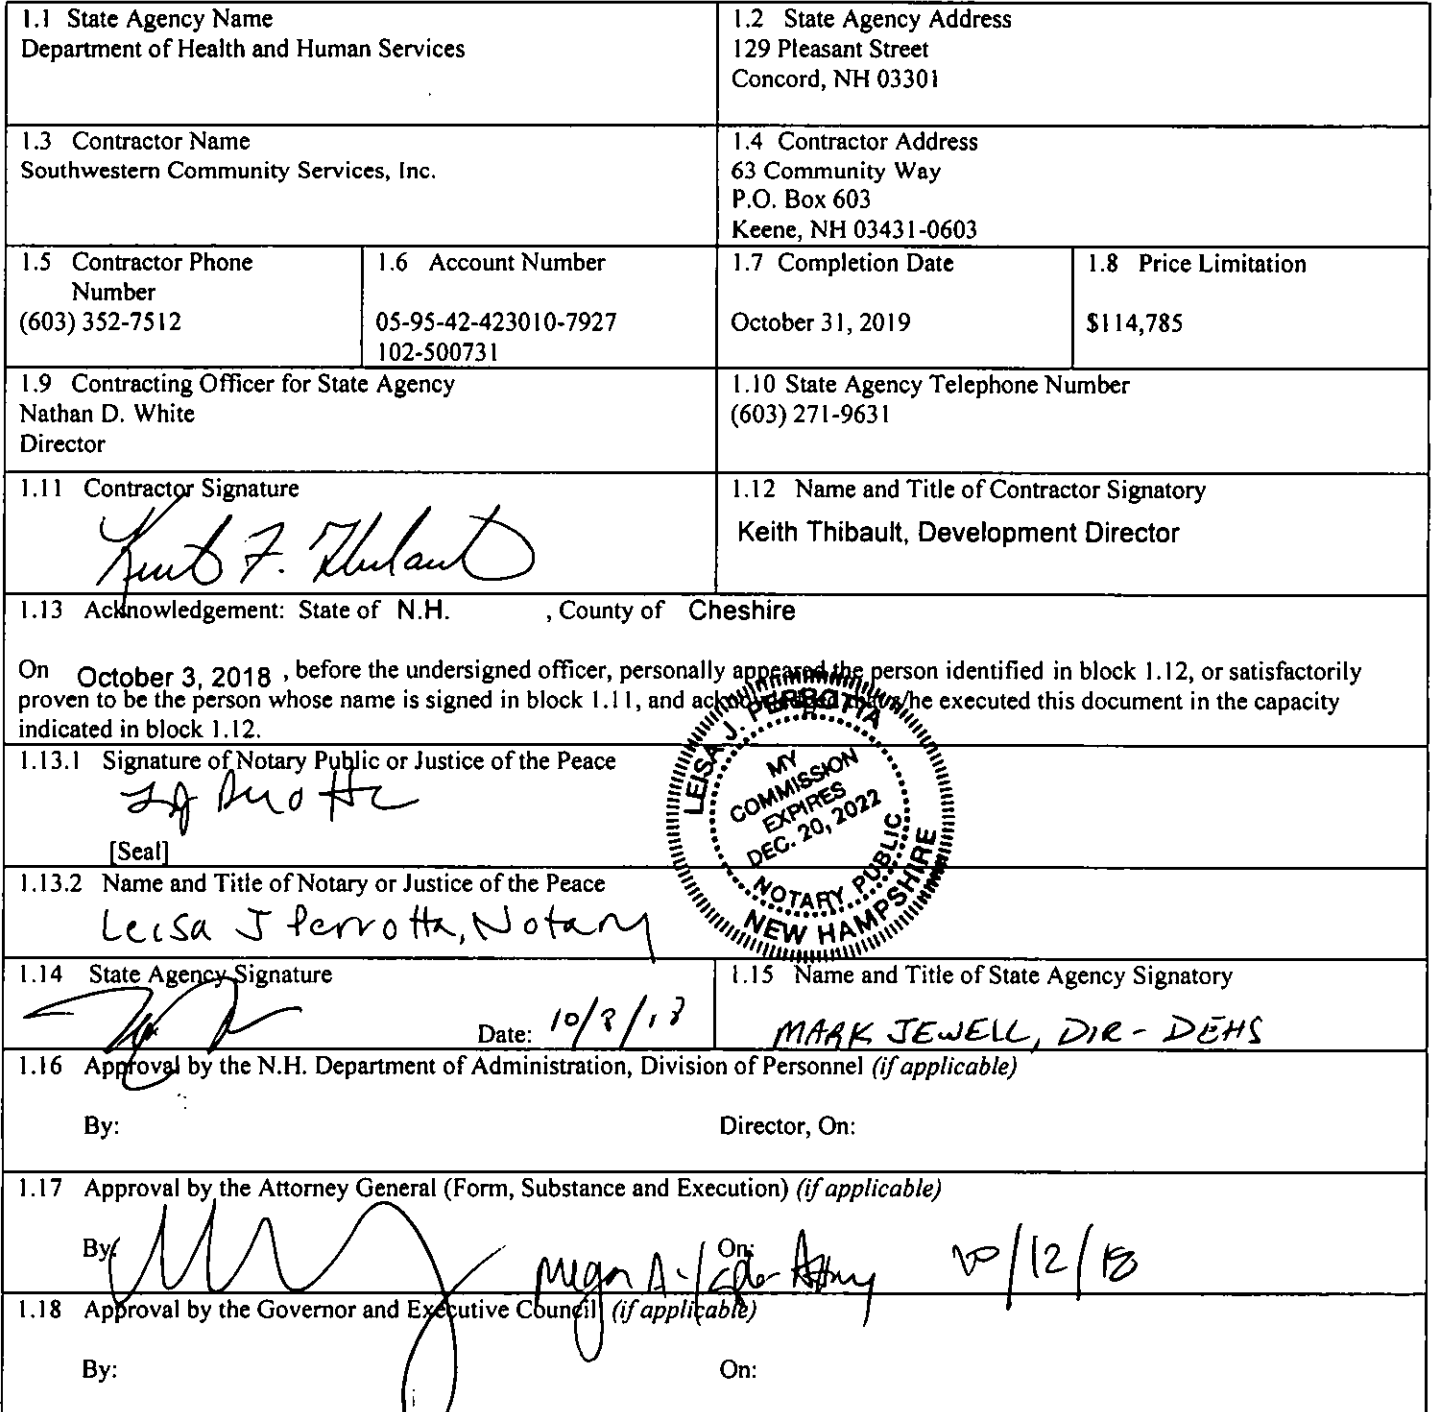 1.1 State Agency Name
Department of Health and Human Services
1.2 State Agency Address
129 Pleasant Street
Concord, NH 03301
1.3 Contractor Name
Southwestern Community Services, Inc.
1.4 Contractor Address
63 Community Way
P.O. Box 603
Keene, NH 03431-0603
1.5 Contractor Phone
Number
(603) 352-7512
1.6 Account Number
05-95-42-423010-7927
102-500731
1.7 Completion Date
October 31, 2019
1.8 Price Limitation
$114,785
1.9 Contracting Officer for State Agency
Nathan D. White
Director
1.10 State Agency Telephone Number
(603) 271-9631
1.11 Contractor Signature
1.12 Name and Title of Contractor Signatory
Keith Thibault, Development Director
1.13 Acknowledgement: State of N.H. , County of Cheshire
On October 3, 2018 , before the undersigned officer, personally appeared the person identified in block 1.12, or satisfactorily
proven to be the person whose name is signed in block 1.11, and s/he executed this document in the capacity
indicated in block 1.12.
1.13.1 Signature of Notary Public or Justice of the Peace
[Seal]
LEISA J. PERROTTA
MY
COMMISSION
EXPIRES
DEC. 20, 2022
NOTARY PUBLIC
NEW HAMPSHIRE
1.13.2 Name and Title of Notary or Justice of the Peace
Leisa J Perrotta, Notary
1.14 State Agency Signature
Date:
1.15 Name and Title of State Agency Signatory
MARK JEWELL, DIR - DEHS
1.16 Approval by the N.H. Department of Administration, Division of Personnel (if applicable)
By:
Director, On:
1.17 Approval by the Attorney General (Form, Substance and Execution) (if applicable)
By:
On:
10/12/18
1.18 Approval by the Governor and Executive Council (if applicable)
By:
On: